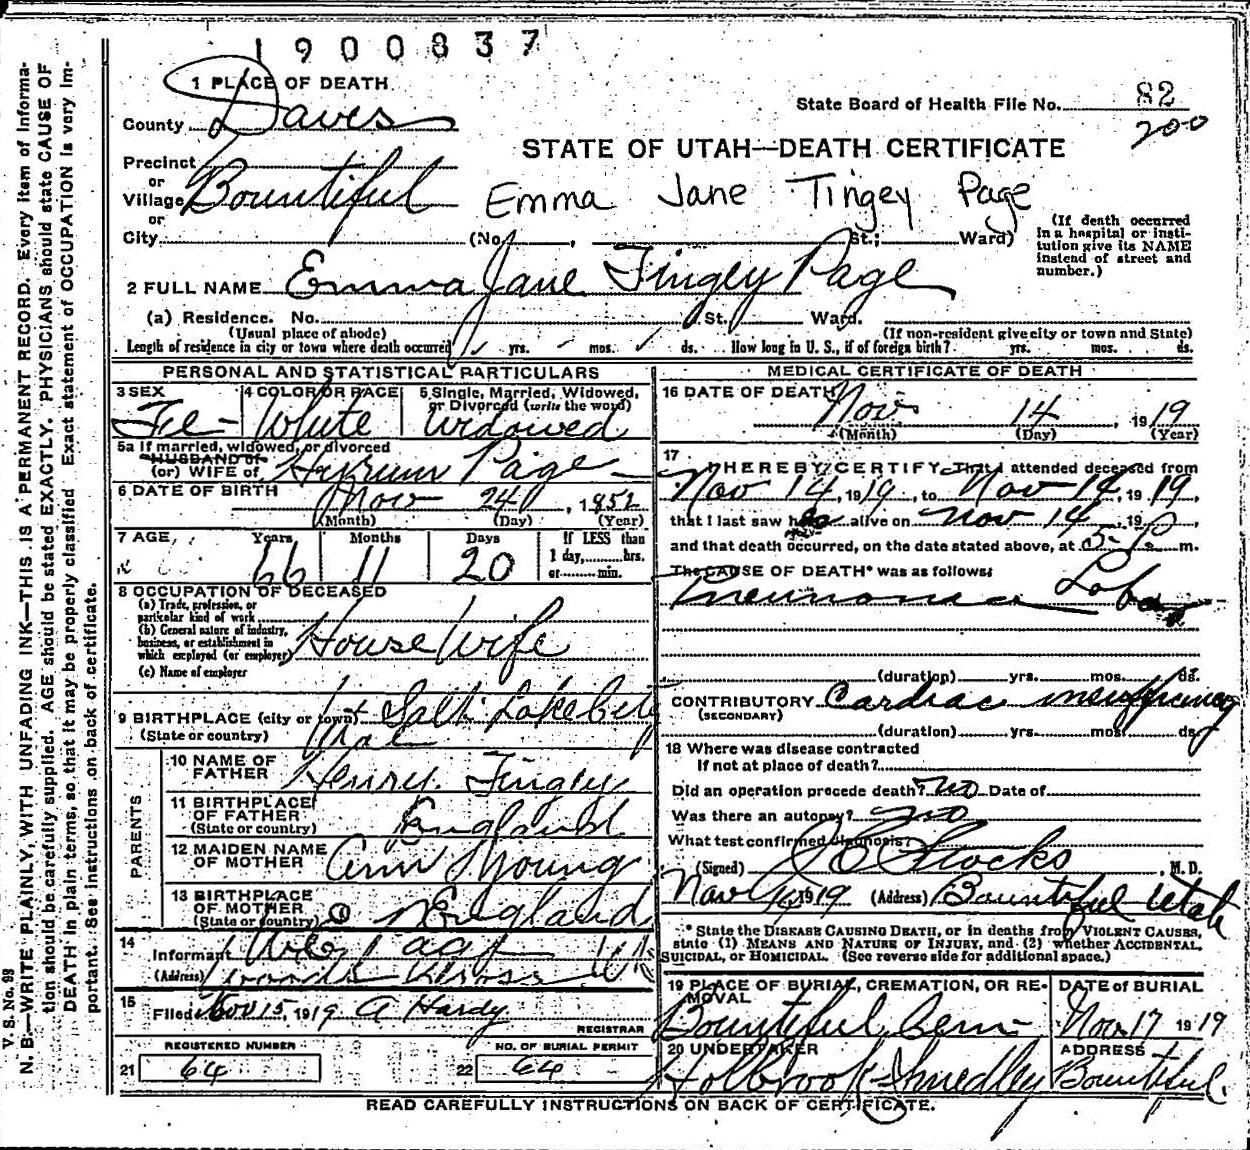 1900837
1 PLACE OF DEATH
State Board of Health File No. 82
200
County Daves
STATE OF UTAH—DEATH CERTIFICATE
Precinct
or
Village Bountiful
Emma Jane Tingey Page
or
City (No. , St.; Ward)
(If death occurred in a hospital or institution give its NAME instead of street and number.)
2 FULL NAME Emma Jane Tingey Page
(a) Residence. No. St. Ward.
(Usual place of abode) (If non-resident give city or town and State)
Length of residence in city or town where death occurred yrs. mos. ds. How long in U. S., if of foreign birth? yrs. mos. ds.
PERSONAL AND STATISTICAL PARTICULARS
3 SEX 4 COLOR OR RACE 5 Single, Married, Widowed, or Divorced (write the word)
Fe- White Widowed
5a If married, widowed, or divorced
HUSBAND of
(or) WIFE of Hyrum Page
6 DATE OF BIRTH Nov 24, 1852
(Month) (Day) (Year)
7 AGE Years Months Days If LESS than 1 day, hrs. or min.
66 11 20
8 OCCUPATION OF DECEASED
(a) Trade, profession, or particular kind of work
(b) General nature of industry, business, or establishment in which employed (or employer)
House Wife
(c) Name of employer
9 BIRTHPLACE (city or town) Salt Lake City
(State or country)
10 NAME OF FATHER Henry Tingey
PARENTS
11 BIRTHPLACE OF FATHER (State or country) England
12 MAIDEN NAME OF MOTHER Ann Young
13 BIRTHPLACE OF MOTHER (State or country) England
14 Informant
(Address) Woods Cross, Ut
15 Filed Nov 15, 1919 A Hardy
REGISTRAR
REGISTERED NUMBER NO. OF BURIAL PERMIT
21 64 22 64
MEDICAL CERTIFICATE OF DEATH
16 DATE OF DEATH Nov 14, 1919
(Month) (Day) (Year)
17 I HEREBY CERTIFY, That I attended deceased from
Nov 14, 1919, to Nov 14, 1919,
that I last saw her alive on Nov 14, 19 ,
and that death occurred, on the date stated above, at 5 P. m.
The CAUSE OF DEATH* was as follows:
Pneumonia Lobar
(duration) yrs. mos. ds.
CONTRIBUTORY Cardiac insufficiency
(SECONDARY)
(duration) yrs. mos. ds.
18 Where was disease contracted
If not at place of death?
Did an operation precede death? no Date of
Was there an autopsy? no
What test confirmed diagnosis?
(Signed) Stocks, M. D.
Nov 16, 1919 (Address) Bountiful Utah
* State the DISEASE CAUSING DEATH, or in deaths from VIOLENT CAUSES, state (1) MEANS AND NATURE OF INJURY, and (2) whether ACCIDENTAL, SUICIDAL, or HOMICIDAL. (See reverse side for additional space.)
19 PLACE OF BURIAL, CREMATION, OR REMOVAL DATE of BURIAL
Bountiful Cem Nov 17 1919
20 UNDERTAKER ADDRESS
Holbrook-Smedley Bountiful
READ CAREFULLY INSTRUCTIONS ON BACK OF CERTIFICATE.
V. S. No. 93
N. B.—WRITE PLAINLY, WITH UNFADING INK—THIS IS A PERMANENT RECORD. Every item of information should be carefully supplied. AGE should be stated EXACTLY. PHYSICIANS should state CAUSE OF DEATH in plain terms, so that it may be properly classified. Exact statement of OCCUPATION is very important. See instructions on back of certificate.